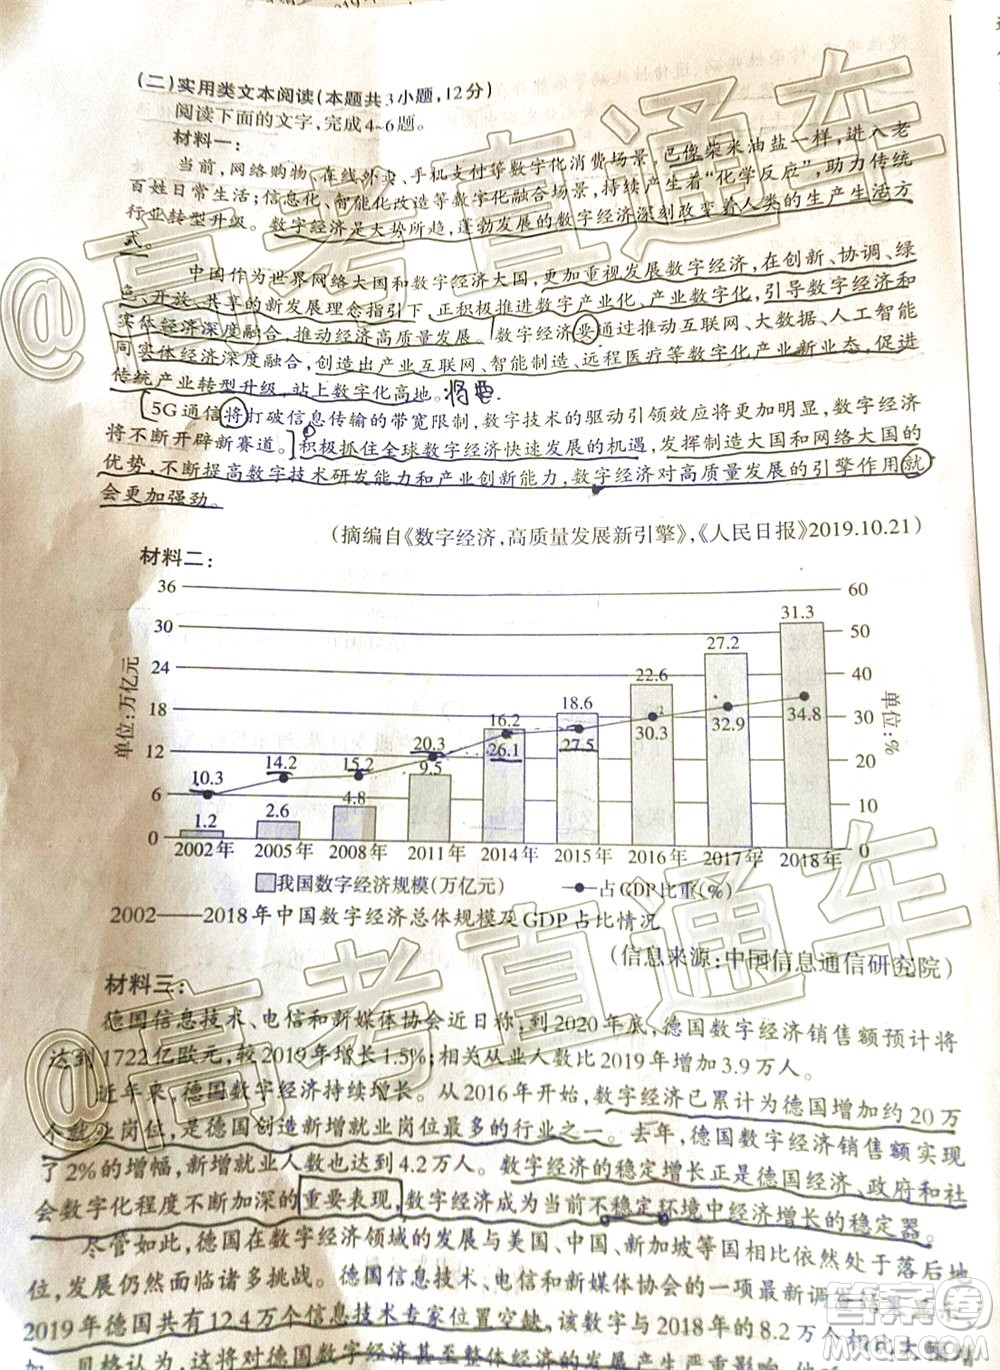 (二)实用类文本阅读(本题共3小题,12分)
阅读下面的文字,完成4-6题。
材料一:
当前,网络购物、在线外卖、手机支付等数字化消费场景,已像柴米油盐一样,进入老
百姓日常生活;信息化、智能化改造等数字化融合场景,持续产生着“化学反应”,助力传统
行业转型升级。数字经济是大势所趋,蓬勃发展的数字经济深刻改变着人类的生产生活方
式。
中国作为世界网络大国和数字经济大国,更加重视发展数字经济,在创新、协调、绿
色、开放、共享的新发展理念指引下,正积极推进数字产业化、产业数字化,引导数字经济和
实体经济深度融合,推动经济高质量发展。数字经济要通过推动互联网、大数据、人工智能
同实体经济深度融合,创造出产业互联网、智能制造、远程医疗等数字化产业新业态,促进
传统产业转型升级,站上数字化高地。将要.
5G通信将打破信息传输的带宽限制,数字技术的驱动引领效应将更加明显,数字经济
将不断开辟新赛道。积极抓住全球数字经济快速发展的机遇,发挥制造大国和网络大国的
优势,不断提高数字技术研发能力和产业创新能力,数字经济对高质量发展的引擎作用就
会更加强劲。
(摘编自《数字经济,高质量发展新引擎》,《人民日报》2019.10.21)
材料二:
36 30 24 18 12 6 0
单位:万亿元
60 50 40 30 20 10 0
单位:%
10.3 14.2 15.2 20.3 26.1 27.5 30.3 32.9 34.8
1.2 2.6 4.8 9.5 16.2 18.6 22.6 27.2 31.3
2002年 2005年 2008年 2011年 2014年 2015年 2016年 2017年 2018年
我国数字经济规模(万亿元) 占GDP比重(%)
2002——2018年中国数字经济总体规模及GDP占比情况
(信息来源:中国信息通信研究院)
材料三:
德国信息技术、电信和新媒体协会近日称,到2020年底,德国数字经济销售额预计将
达到1722亿欧元,较2019年增长1.5%;相关从业人数比2019年增加3.9万人。
近年来,德国数字经济持续增长。从2016年开始,数字经济已累计为德国增加约20万
个就业岗位,是德国创造新增就业岗位最多的行业之一。去年,德国数字经济销售额实现
了2%的增幅,新增就业人数也达到4.2万人。数字经济的稳定增长正是德国经济、政府和社
会数字化程度不断加深的重要表现,数字经济成为当前不稳定环境中经济增长的稳定器。
尽管如此,德国在数字经济领域的发展与美国、中国、新加坡等国相比依然处于落后地
位,发展仍然面临诸多挑战。德国信息技术、电信和新媒体协会的一项最新调
2019年德国共有12.4万个信息技术专家位置空缺,该数字与2018年的8.2万个相比大
贝格认为,这将对德国数字经济甚至整体经济的发展产生严重影响
@高考直通车
@高考直通车
答案圈